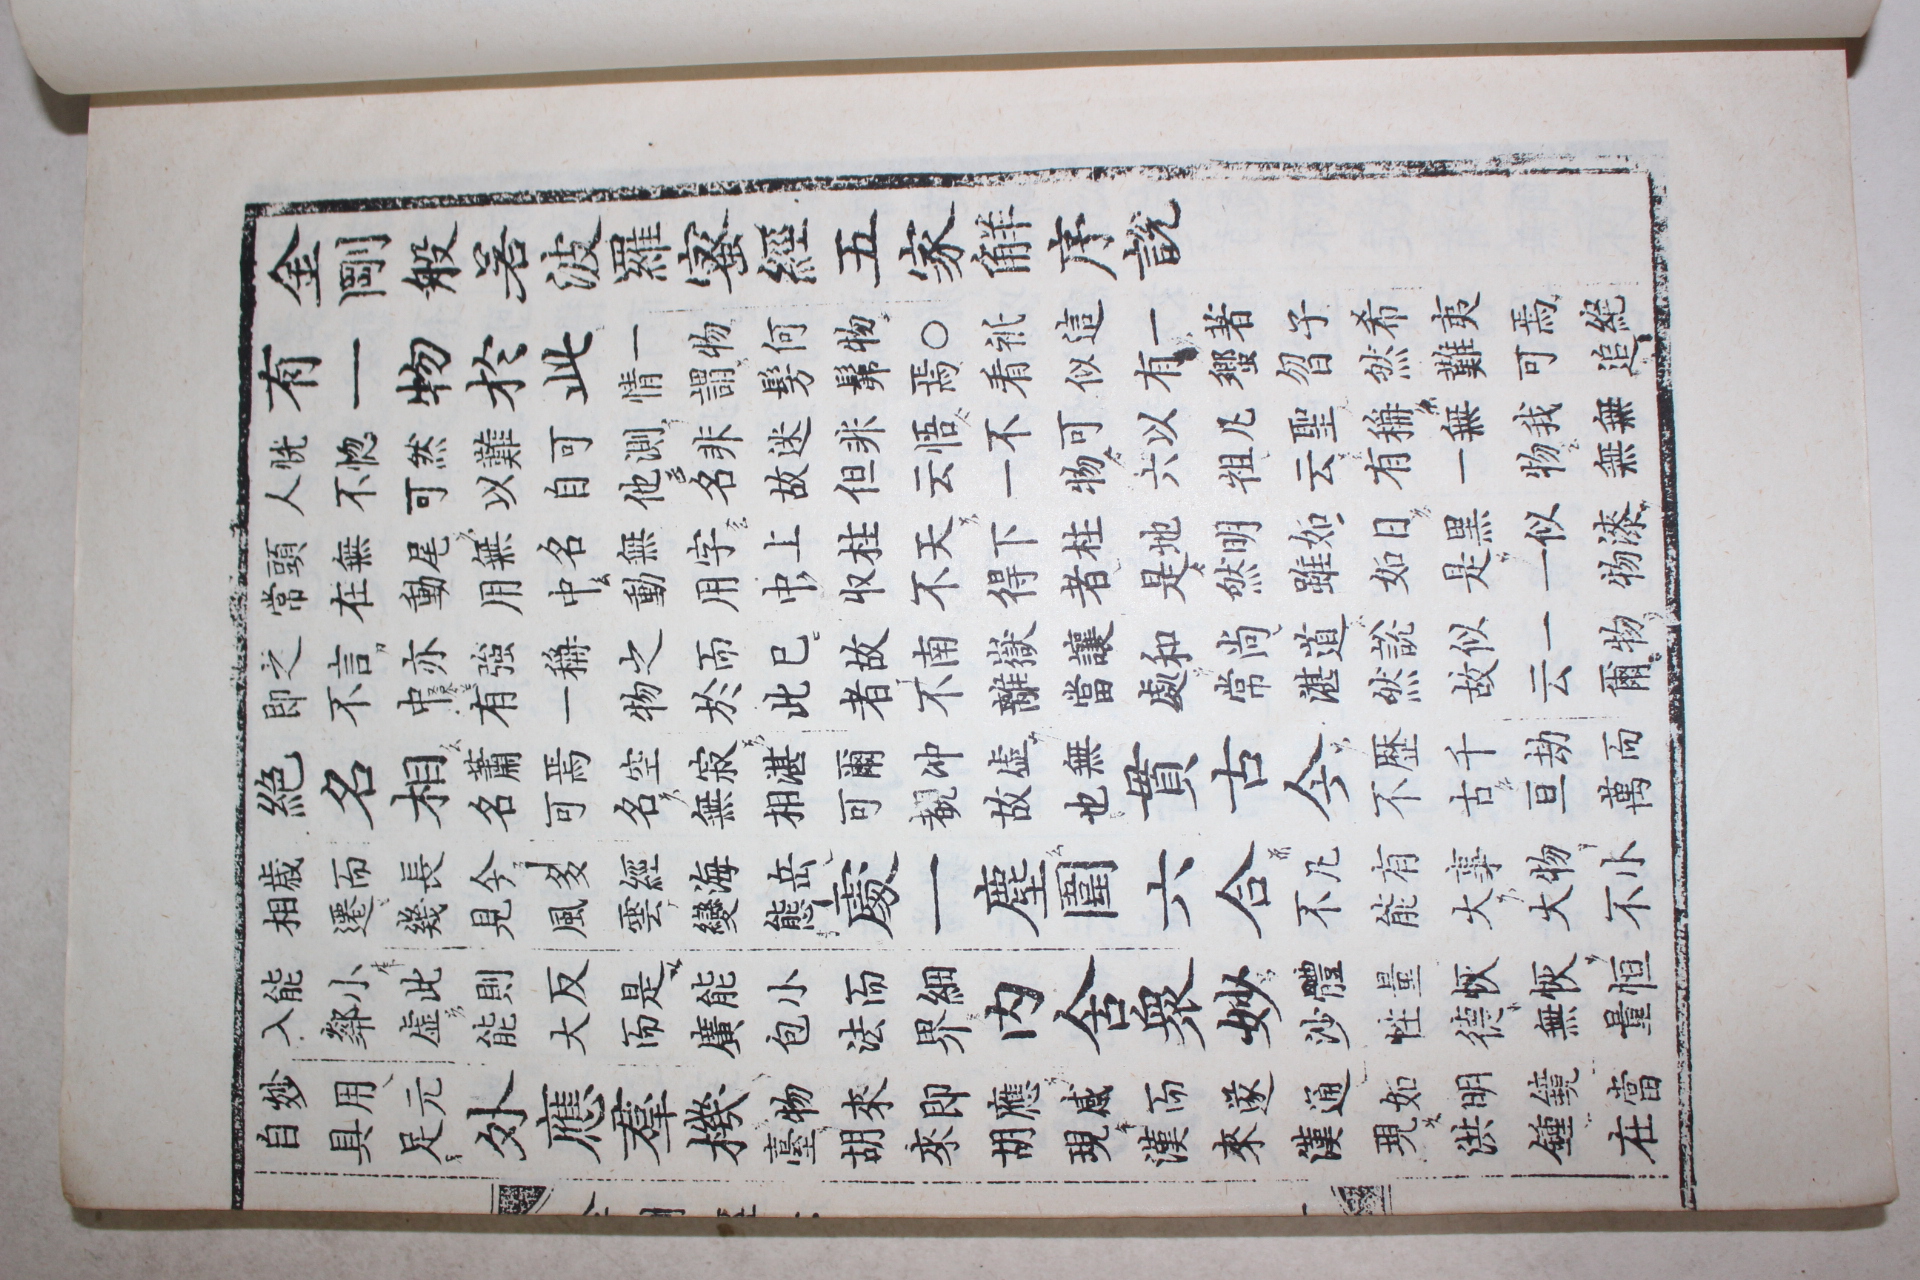 金剛般若波羅蜜經五家觧序說
有一物於此
一物何物○秖這一著子希夷焉絕
情謂髣髴焉看似有蠁曶然難可追
恍惚然難可測非迷非悟不可以凡聖稱無我無
人不可以自他名故但云一物六祖云有一物無
頭無尾無名無字上柱天下柱地明如日黑似漆
常在動用中動用中收不得者是然雖如是一物
之言亦強稱之而已故南嶽讓和尚道說似一物
即不中有一物於此者不離當處常湛然故云爾
絕名相
蕭焉空寂湛爾冲虛無
名可名無相可覩故也
貫古今
歷千劫而
不古亘萬
歲而長今多經海岳
相遷幾見風雲變態
處一塵圍六合
凡有事物小
不能大大不
能小此則反是能小而細
入鄰虛能大而廣包法界
內含衆妙
體量恢恢恒
沙性德無量
妙用元
自具足
外應羣機
物來即應感而遂通如明鏡當
臺胡來胡現漢來漢現洪鍾在